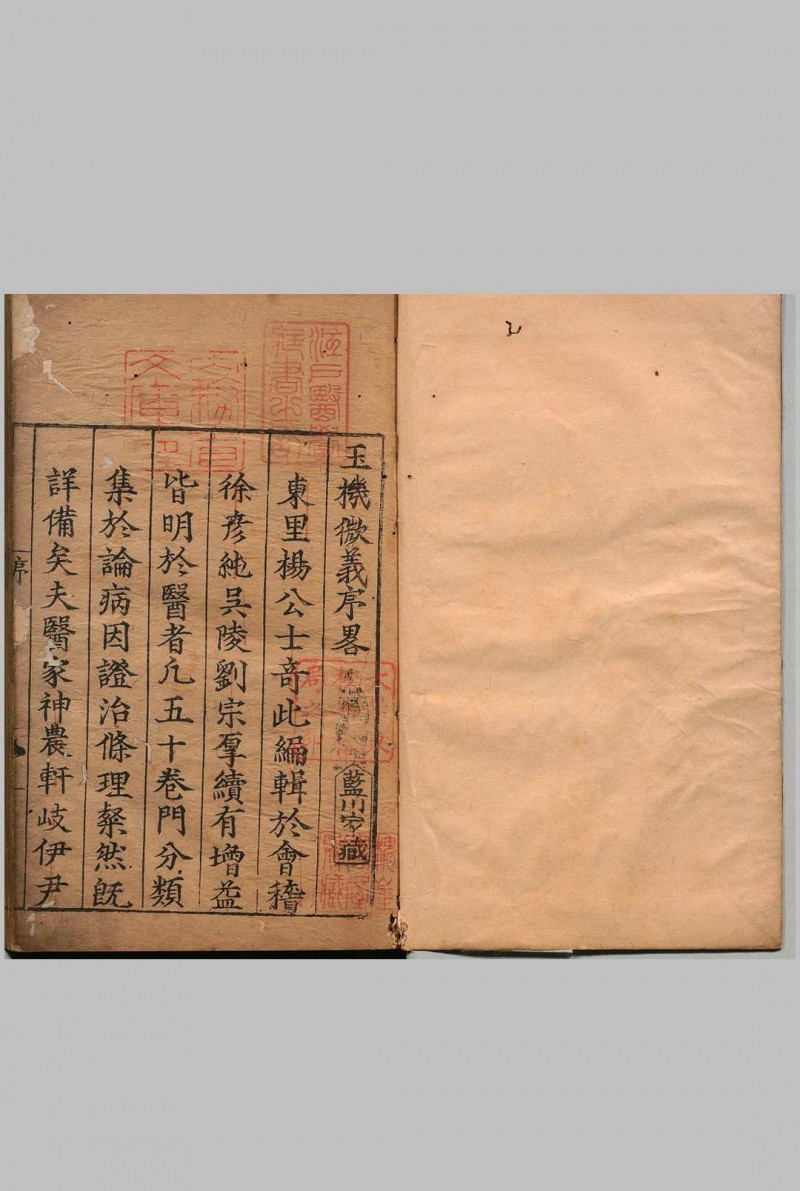 玉機微義序畧
藍川家藏
東里楊公士竒此編輯於會稽
徐彦純吳陵劉宗厚續有增益
皆明於醫者凢五十卷門分類
集於論病因證治條理粲然旣
詳備矣夫醫家神農軒岐伊尹
序
江戸醫學